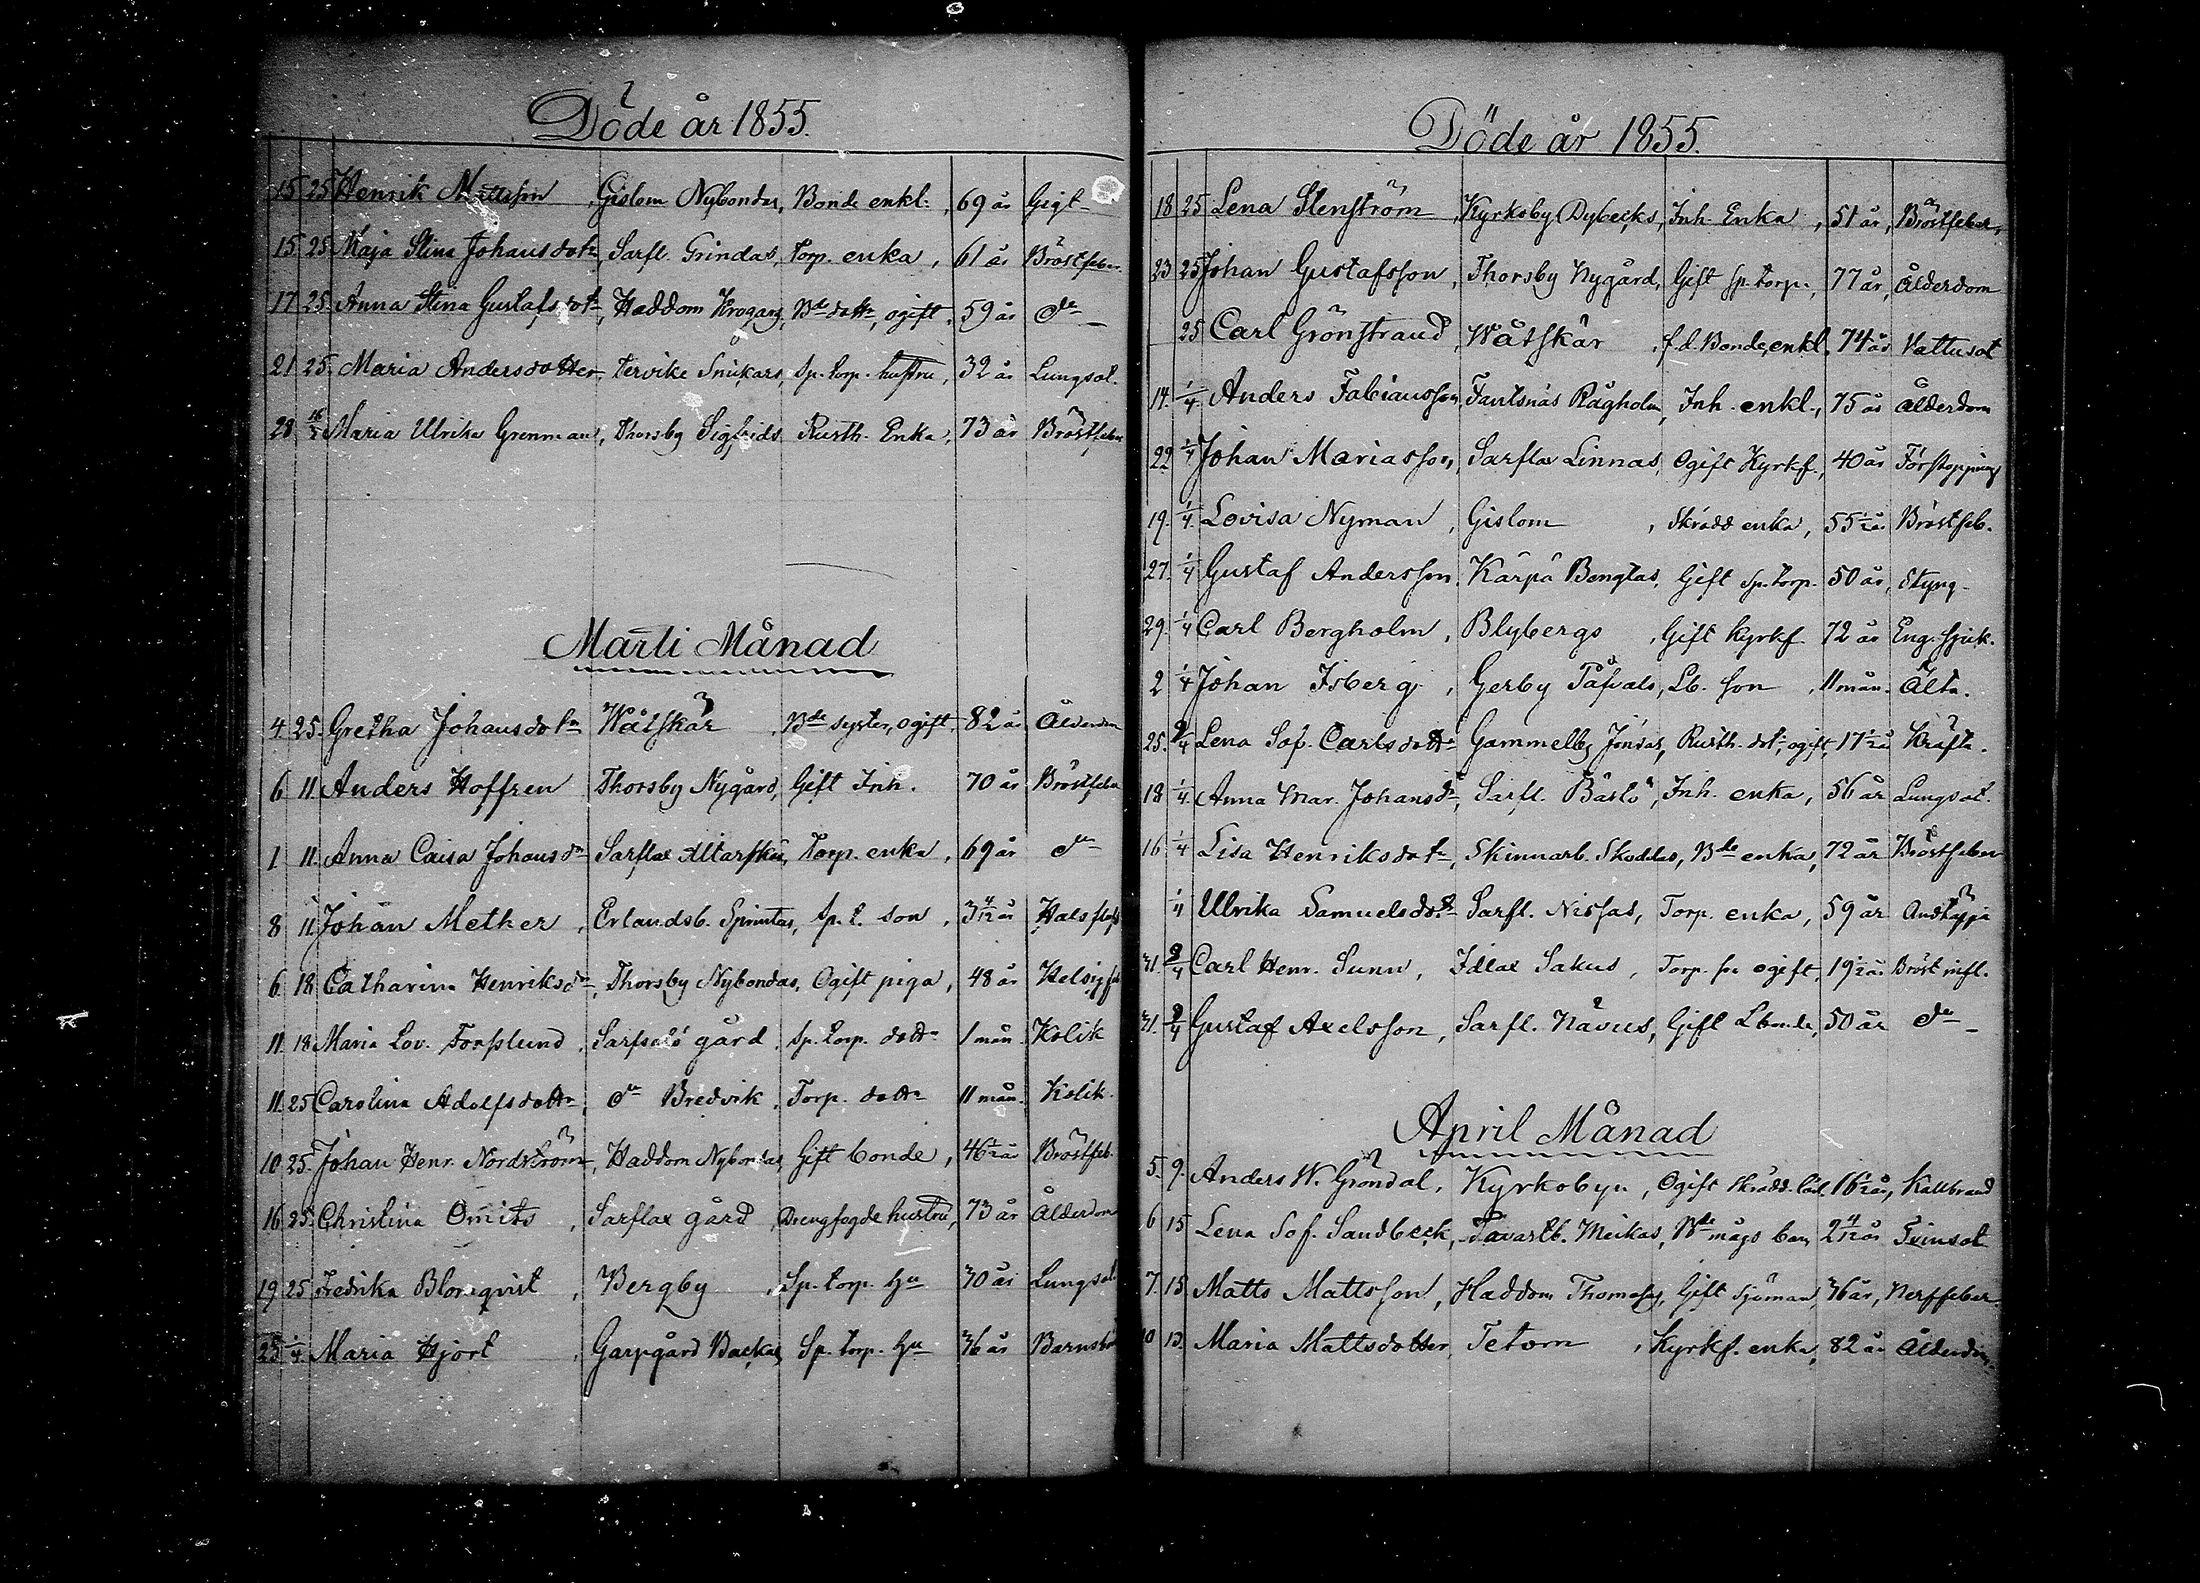 Döde år 1855.
15 25 Henrik Mattsson, Gislom Nybondas, Bonde enkl., 69 år Gigt
15 25 Maja Stina Johansdotr, Sarfl. Grindas, torp. enka, 61 år Bröstfeber
17 25. Anna Stina Gustafsdotr, Haddom Krogars, Bde dottr, ogift, 59 år do
21 25. Maria Andersdotter, Tervike Snickars, Sp. torp. hustru, 32 år Lungsot.
28 Maria Ulrika Grenman, Thorsby Sigfrids Rusth. Enka, 73 år Bröstfeber
Marti Månad
4. 25. Gretha Johansdotr Wåtskär, Bde syster, ogift, 82 år Ålderdom
6 11 Anders Hoffren Thorsby Nygård, Gift Inh. 70 år Bröstfeber
1 11. Anna Caisa Johansdr Sarflax Altarskär, Torp. enka, 69 år do
8 11. Johan Metker, Erlandsb. Sprintas, Sp. t. son, 3 4/12 år Halsfluss
6 18 Catharina Henriksdr, Thorsby Nybondas, Ogift piga, 48 år
11. 18 Maria Lov. Forslund, Sarfsalö gård, Sp. torp. dottr 1 mån. Kolik
11. 25 Carolina Adolfsdottr, do Bredvik, Torp. dottr 11 mån. Kolik.
10. 25. Johan Henr. Nordström, Haddom Nybondas Gift bonde, 46 1/2 år Bröstfeb.
16 25. Christina Omits, Sarflax gård, Drengfogde hustru, 73 år Ålderdom
19. 25 Fredrika Blomqvist, Bergby, Sp. torp. hu 30 år Lungsot
23 1/4. Maria Hjort, Garpgård Backas, Sp. torp. hu 36 år Barnsbörd
Döde år 1855.
18 25 Lena Stenström, Kyrkoby Dybecks, Inh. Enka, 51 år, Bröstfeber,
23 25 Johan Gustafsson, Thorsby Nygård, Gift Sp. torp., 77 år, Ålderdom
25 Carl Grönstrand, Wåtskär, f.d. Bonde, enkl. 74 år Vattusot
14. 1/4. Anders Fabiansson, Fantsnäs Rågholm, Inh. enkl., 75 år Ålderdom
22 1/4 Johan Mariasson, Sarflax Linnas, Ogift Kyrkf., 40 år Förstoppning
19. 1/4. Lovisa Nyman, Gislom, Skrädd enka, 55 1/2 år Bröstfeb.
27. 1/4 Gustaf Andersson, Kärpä Bengtas, Gift Sp. torp. 50 år, Styng
29. 1/4 Carl Bergholm, Blybergs, Gift Kyrkf. 72 år Eng. sjuk.
2 1/4 Johan Isberg, Gerby Påfvals, Lb. son, 11 mån. Älta.
25. 9/4 Lena Sof. Carlsdottr Gammelby Jönsas, Rusth. dotr, ogift, 17 1/2 år Kräfta.
18 1/4. Anna Mar. Johansdr, Sarfl. Båslö, Inh. enka, 56 år Lungsot.
16 1/4 Lisa Henriksdotr, Skinnarb. Skeddas, Bde enka, 72 år Bröstfeber
1/4 Ulrika Samuelsdotr Sarfl. Nissas, Torp. enka, 59 år Andtäppa
31. 9/4 Carl Henr. Sunn, Idlax Sakus, Torp. son ogift, 19 1/2 år Bröst infl.
31. 9/4 Gustaf Axelsson, Sarfl. Nävus, Gift Lbonde, 50 år do
April Månad
5. 9. Anders W. Gröndal, Kyrkobyn, Ogift skrädd. lärl. 16 1/2 år, Kallbrand
6 15 Lena Sof. Sandbeck, Tavastb. Meikas, Bde mågs barn, 2 4/12 år Tvinsot
7. 15 Matts Mattsson, Haddom Thomasas, Gift Sjöman, 36 år, Nerffeber.
10 15. Maria Mattsdotter, Tetom, Kyrkf. enka, 82 år Ålderdom